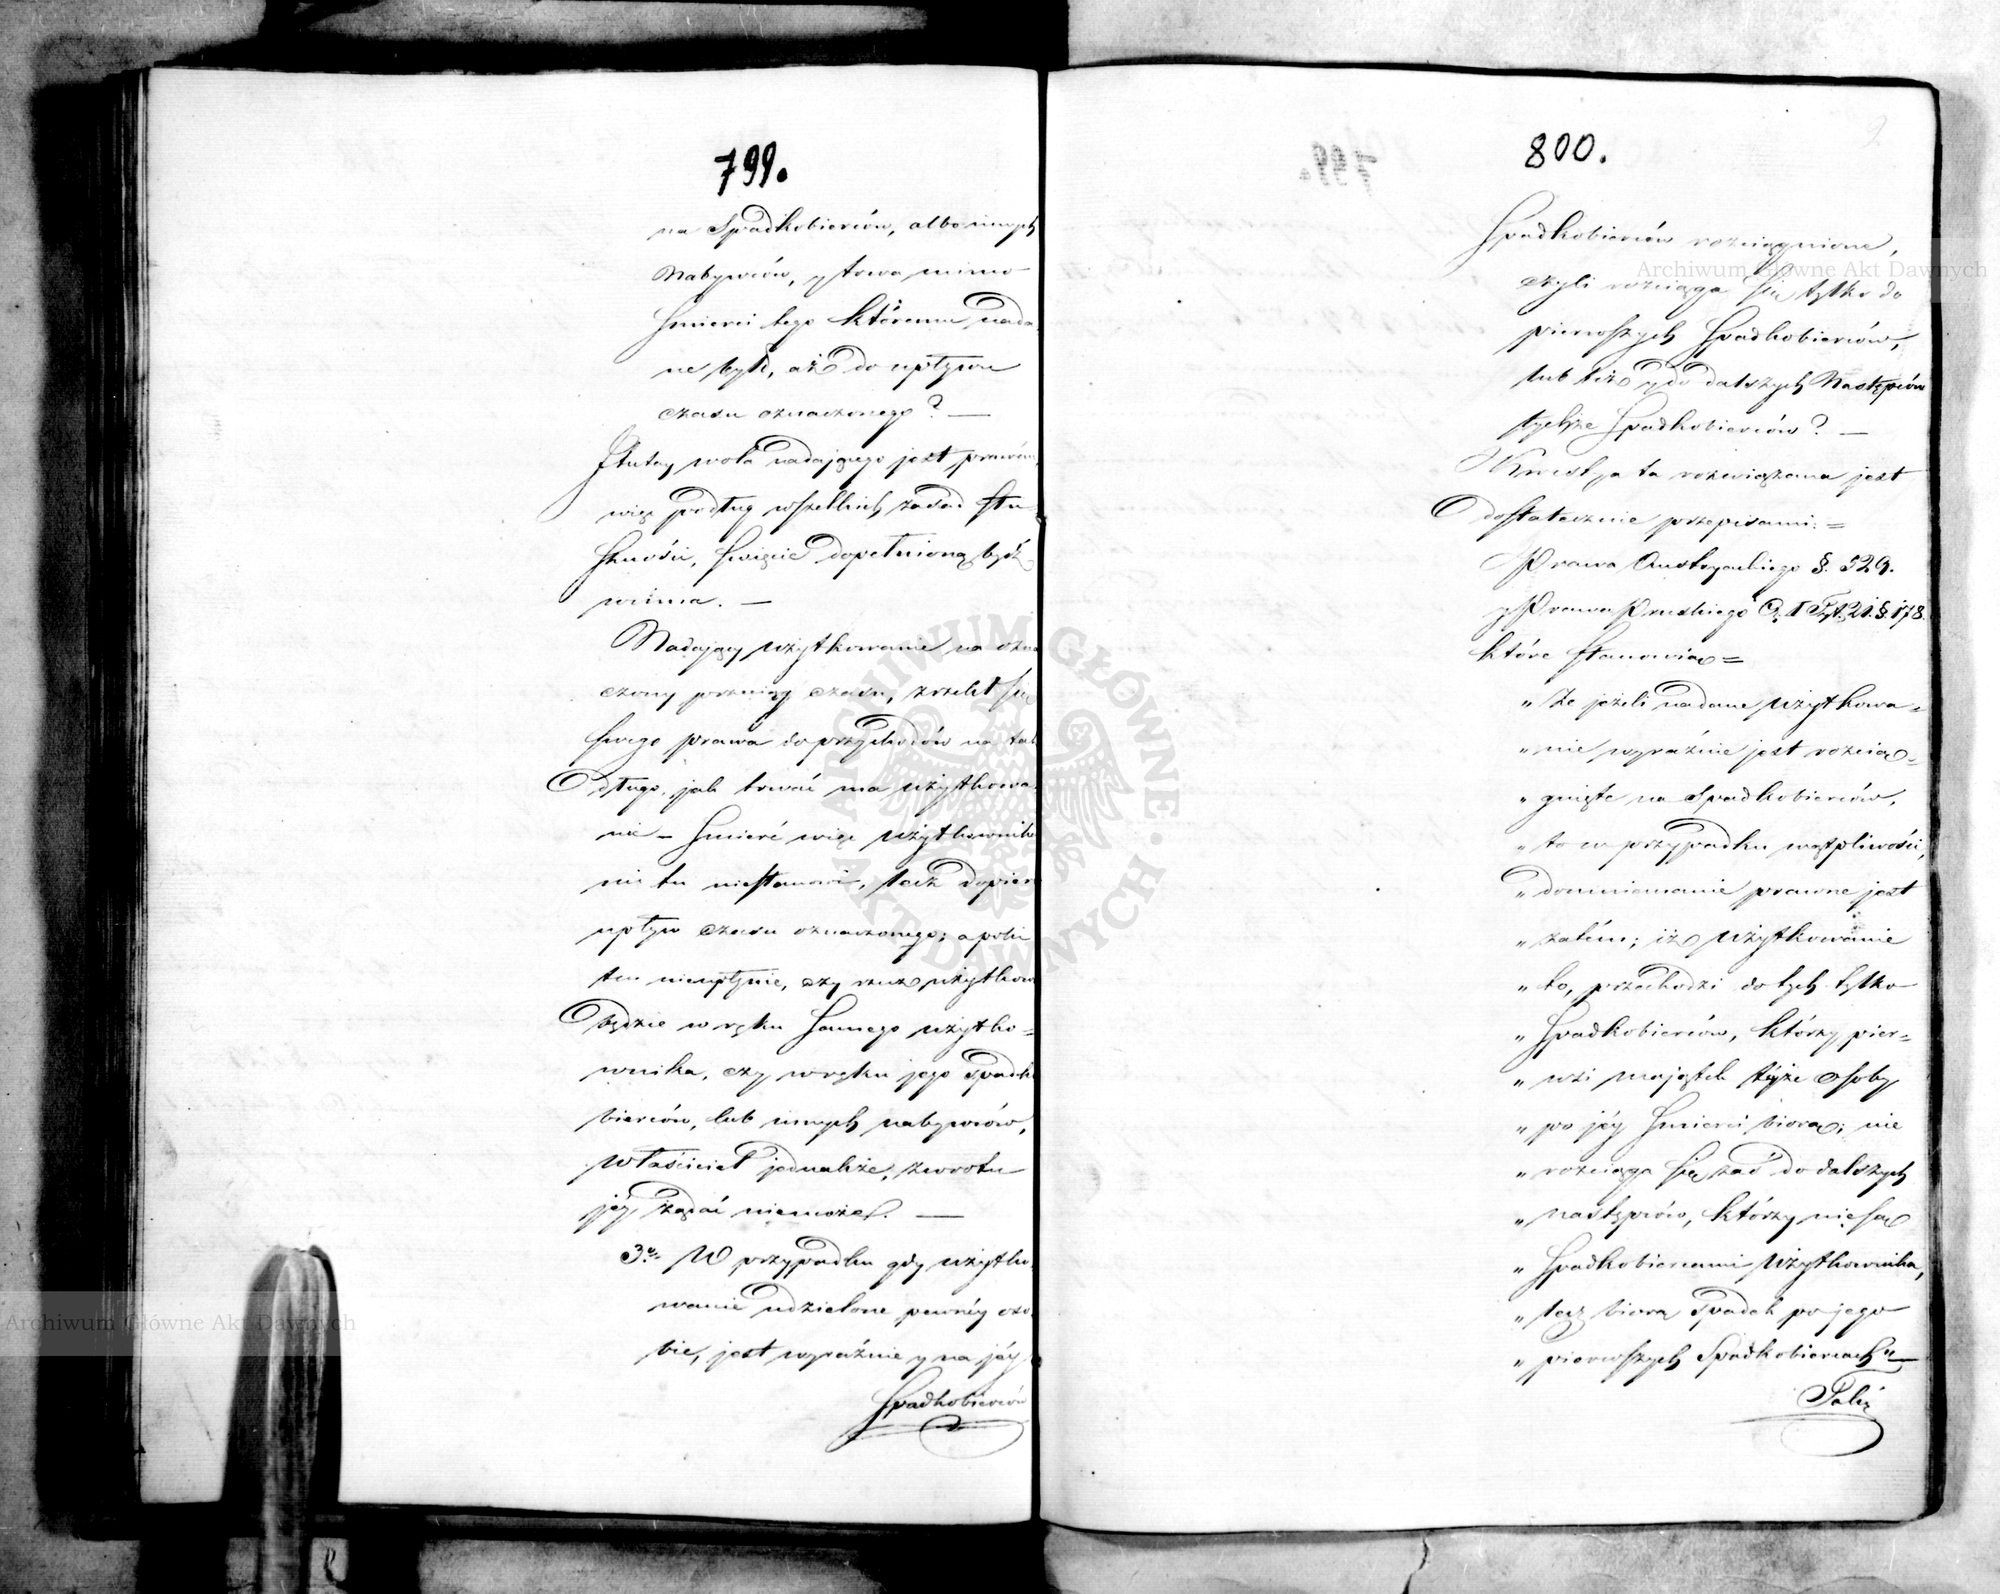 799.
na Spadkobierców, albo innych
Nabywców, y trwa mimo
Smierci tego któremu nada
ne było, aż do upływu
czasu oznaczonego? —
I tutay wola nadającego jest prawem,
więc podług wszelkich zasad słu-
szności, święcie dopełnioną być
winna. —
Nadający użytkowanie na ozna
czony przeciąg czasu, zrzekł się
swego prawa do przychodów na tak
długo, jak trwać ma użytkowa
nie — Śmierć więc użytkownika
nic tu niestanowi, lecz dopiero
upływ czasu oznaczonego; a póki
ten nieupłynie, czy rzecz użytkow
będzie w ręku samego użytko=
wnika, czy w ręku jego Spadko
bierców, lub innych nabywców,
właściciel jednakże, zwrotu
jéy żądać niemoże. —
3e W przypadku gdy użytko
wanie udzielone pewnéy oso
bie, jest wyraźnie y na jéy
Spadkobierców
800.
Spadkobierców rozciągnione,
czyli rozciąga się tylko do
pierwszych Spadkobierców,
lub też y do dalszych Następców
tychże Spadkobierców? —
Kwestya ta rozwiązana jest
dostatecznie przepisami: =
Prawa Austryackiego §. 529.
y Prawa Pruskiego Cz. I Tyt. 21. §. 178.
które stanowią =
„ Że jeżeli nadane użytkowa=
„ nie wyraźnie jest rozcią=
„ gnięte na Spadkobierców,
„ to w przypadku wątpliwości,
„ domniemanie prawne jest
„ zatém; iż użytkowanie
„ to, przechodzi do tych tylko
„ Spadkobierców, którzy pier=
„ wsi majątek téjże osoby
„ po jéy Śmierci biorą; nie
„ rozciąga się zaś do dalszych
„ następców, którzy nie są
„ Spadkobiercami Użytkownika,
„ lecz biorą Spadek po jego
„ pierwszych Spadkobiercach" —
Archiwum Główne Akt Dawnych
ARCHIWUM GŁÓWNE AKT DAWNYCH
Archiwum Główne Akt Dawnych